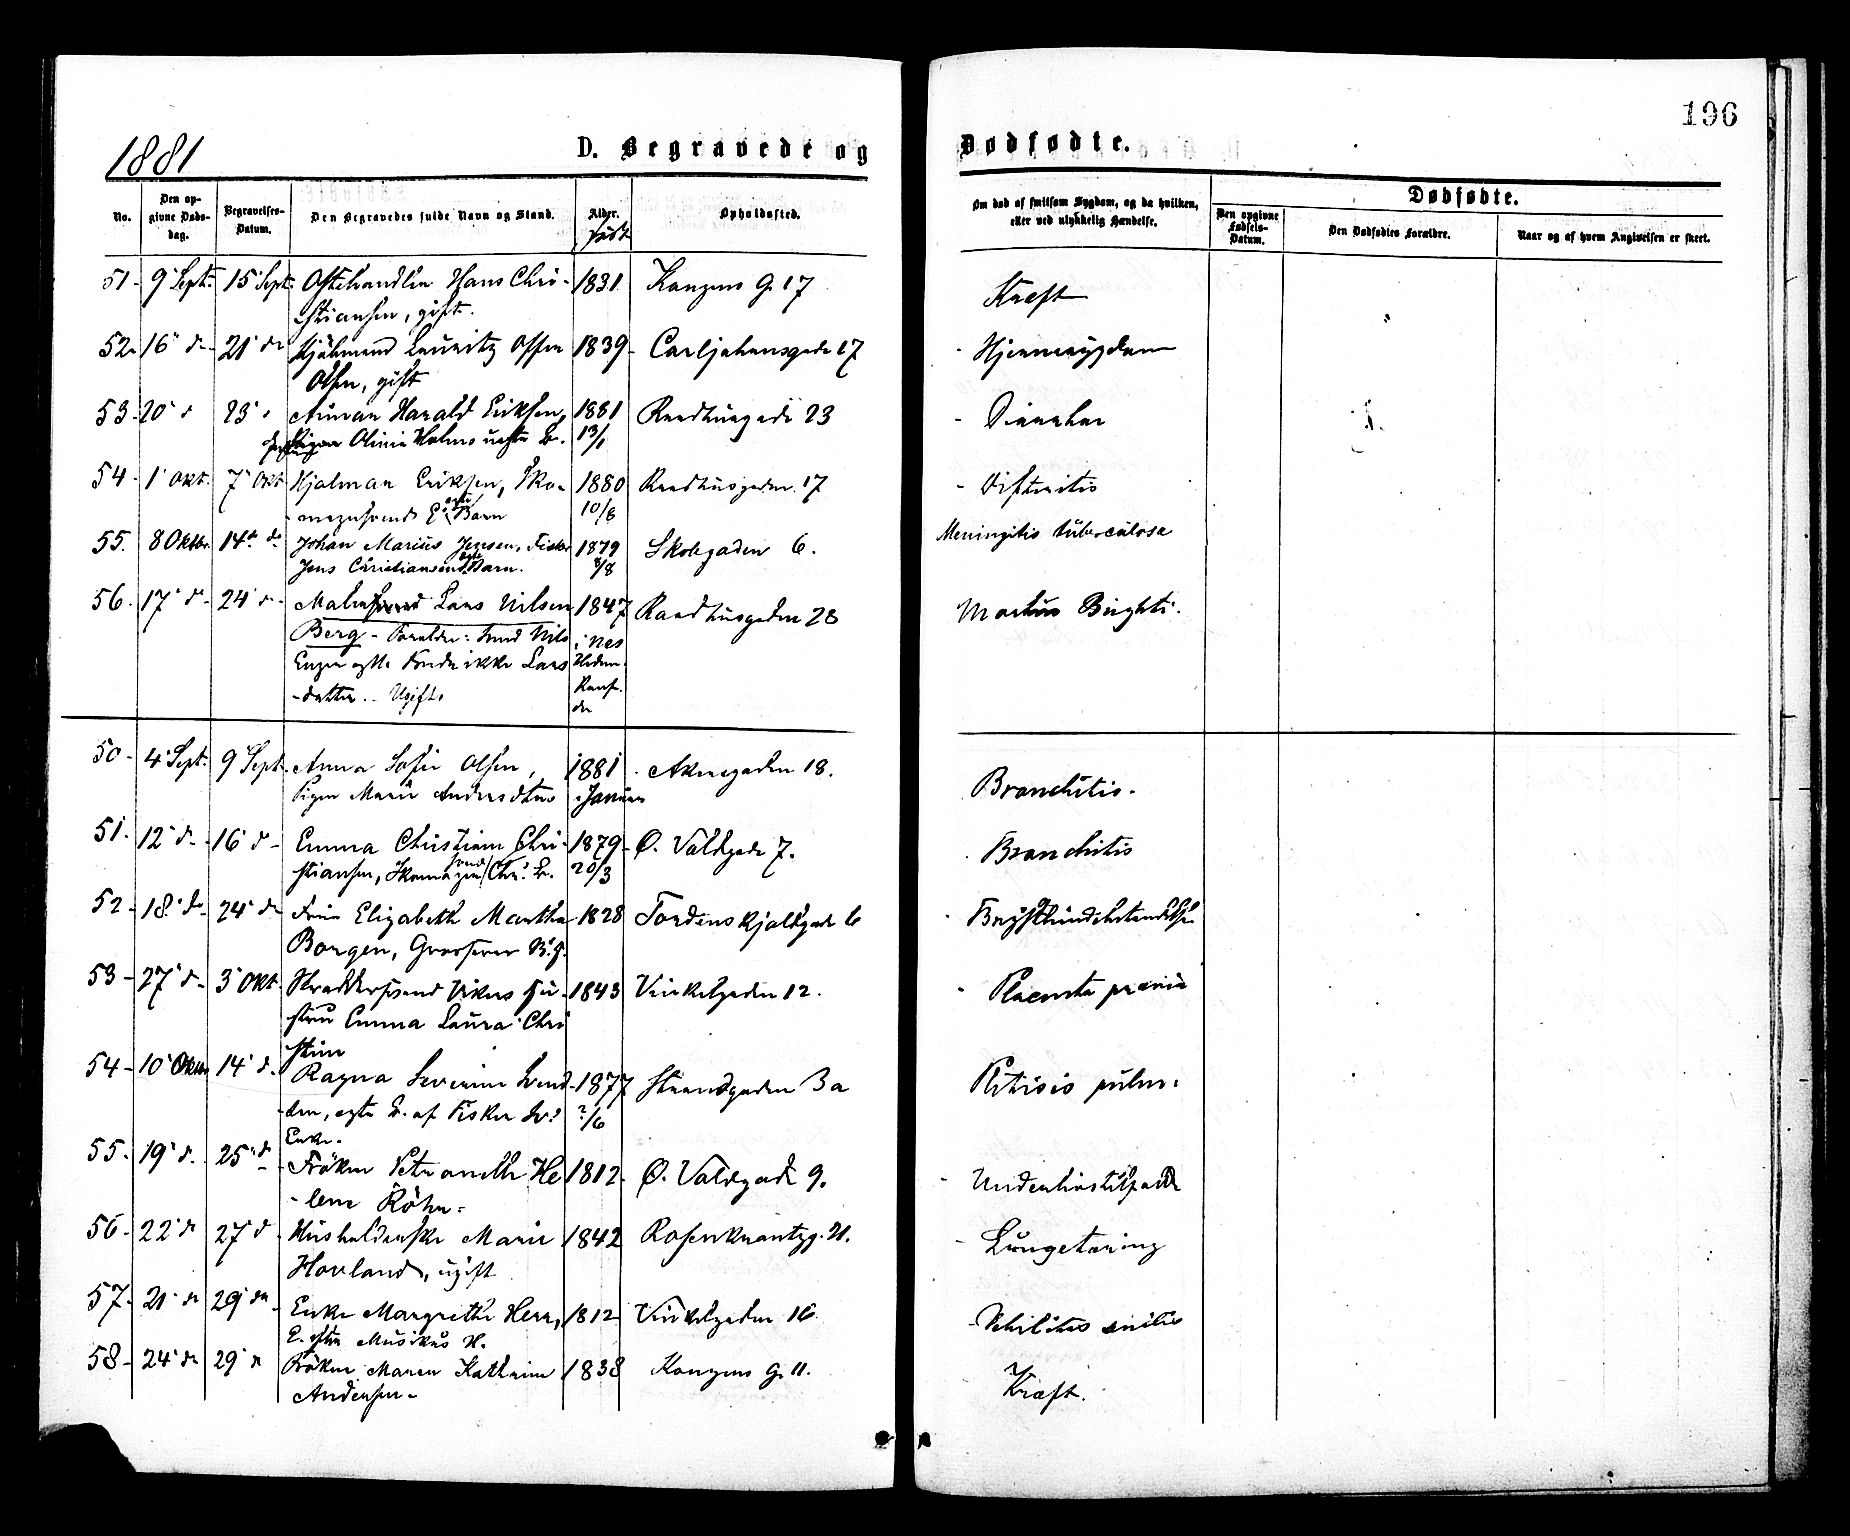 196
1881
D. Begravede og Dødfødte.
No.
Den opgivne Dødsdag.
Begravelses-Datum.
Den Begravedes fulde Navn og Stand.
Alder.
født
Opholdssted.
Om død af smitsom Sygdom, og da hvilken,
eller ved ulykkelig Hændelse.
Dødfødte.
Den opgivne Fødsels-Datum.
Den Dødfødtes Forældre.
Naar og af hvem Angivelsen er skeet.
51 - 9 Sept. 15 Sept. Ostehandler Hans Chri- 1831 Kongens G. 17 Kræft
stiansen, gift.
52 16 d 21 d Lauritz 1839 Carljohansgade 17
Olsen, gift
53 20 d 23 Harald Eriksen 1881 Raadhusgade 23
Olivia Holms uægte B. 13/1
54 1 Okt. 7 Okt Hjalmar Eriksen, Sko- 1880 Raadhusgaden 17 Difteritis
E. ægte Barn 10/8
55. 8 Oktbr. 14 d Johan Marius Jensen, Fisker 1879 Skolegaden 6. Meningitis tuberculosa
Jens Christiansens ægte Barn. 8/8
56. 17 d 24 d Malersvend Lars Nilsen 1847 Raadhusgaden 28 Morbus Brighti.
Berg - Forældre: Nils i Nes
Lars Hedem.
datter. Ugift
50 - 4 Sept. 9 Sept. Anna Sofie Olsen, 1881 Akersgaden 18. Bronchitis.
Pigen Marie Andersdtrs Januar
51. 12 d 16 d Emma Christiane Chri- 1879 Ø. Voldgade 7. Bronchitis
stiansen, Skomagersvend Chr. B. 20/3
52 - 18 d 24 d Frue Elizabeth Martha 1828 Tordenskjoldsgade 6
Borgen, Grosserer B.
53 - 27 d 3 Okt. Hu- 1843 Vinkelgaden 12. Placenta prævia
stru Emma Laura Chri
stine
54 - 10 Oktbr 14 d. Ragna Severine 1877 Strandgaden 3a Phtisis pulm.
ægte B. af Fisker ?/6
55 - 19 d. 25 d Frøken Petronelle He 1812 Ø. Voldgade 9. Underlivs
lene Röhr
56 - 22 d 27 d Husholderske Marie 1842 Rosenkrantzg. 21. Lungetæring
Hovland, ugift
57 - 21 d 29 d Enke Margrethe Herr, 1812 Vinkelgaden 16 Debilitas senilis
E. efter Musikus H.
58 - 24 d 29 d Frøken Maren Kathrine 1838 Kongens G. 11. Kræft.
Andersen